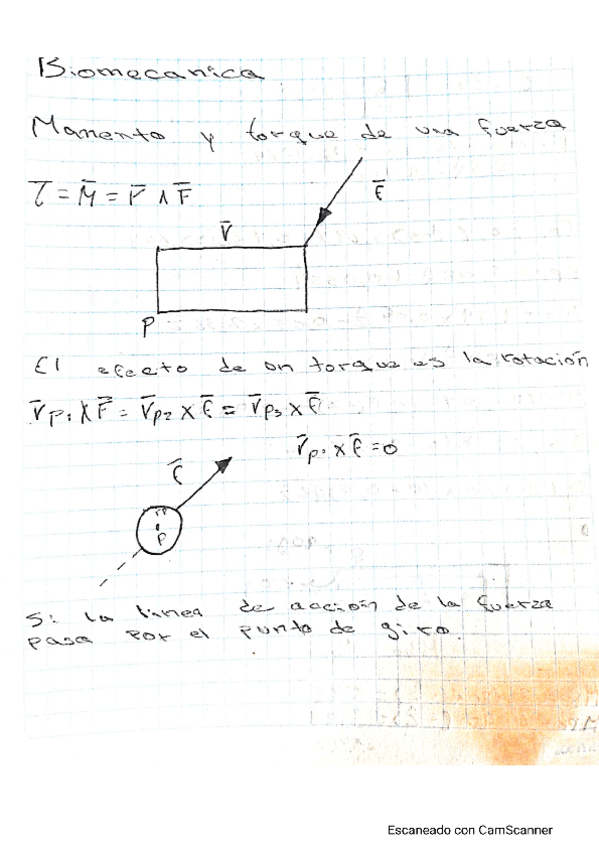 Biomecanica
Momento y torque de una fuerza
τ = M̄ = r̄ ∧ F̄
F̄
r̄
P
El efecto de un torque es la rotación
r̄p₁ x F̄ = r̄p₂ x F̄ = r̄p₃ x F̄
r̄p₀ x F̄ = 0
F̄
P
Si la linea de acción de la fuerza
pasa por el punto de giro.
Escaneado con CamScanner